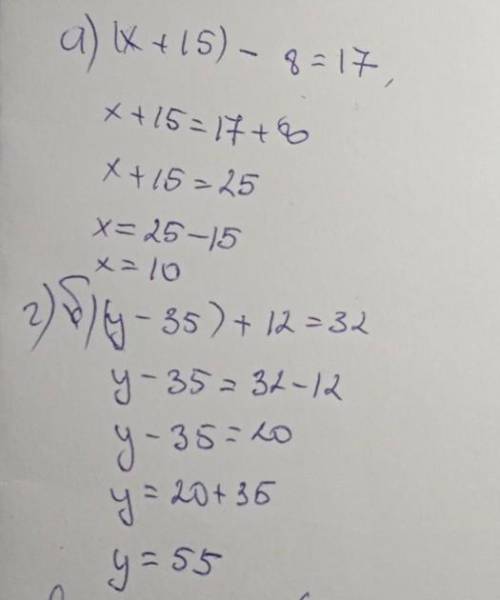 а) (x + 15) - 8 = 17,
x + 15 = 17 + 8
x + 15 = 25
x = 25 - 15
x = 10
г) б) (y - 35) + 12 = 32
y - 35 = 32 - 12
y - 35 = 20
y = 20 + 35
y = 55